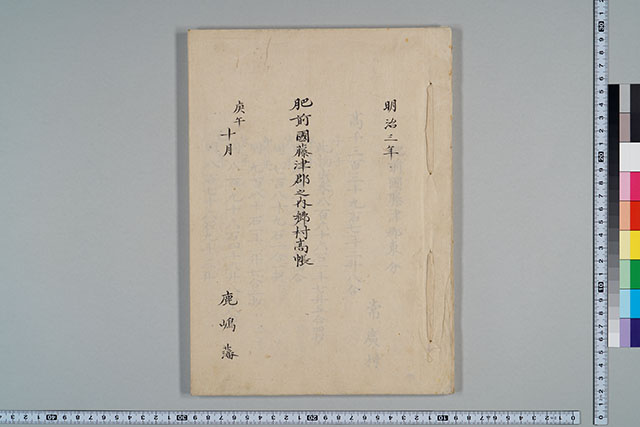 明治三年
肥前國藤津郡之内郷村高帳
庚午
十月
鹿嶋藩